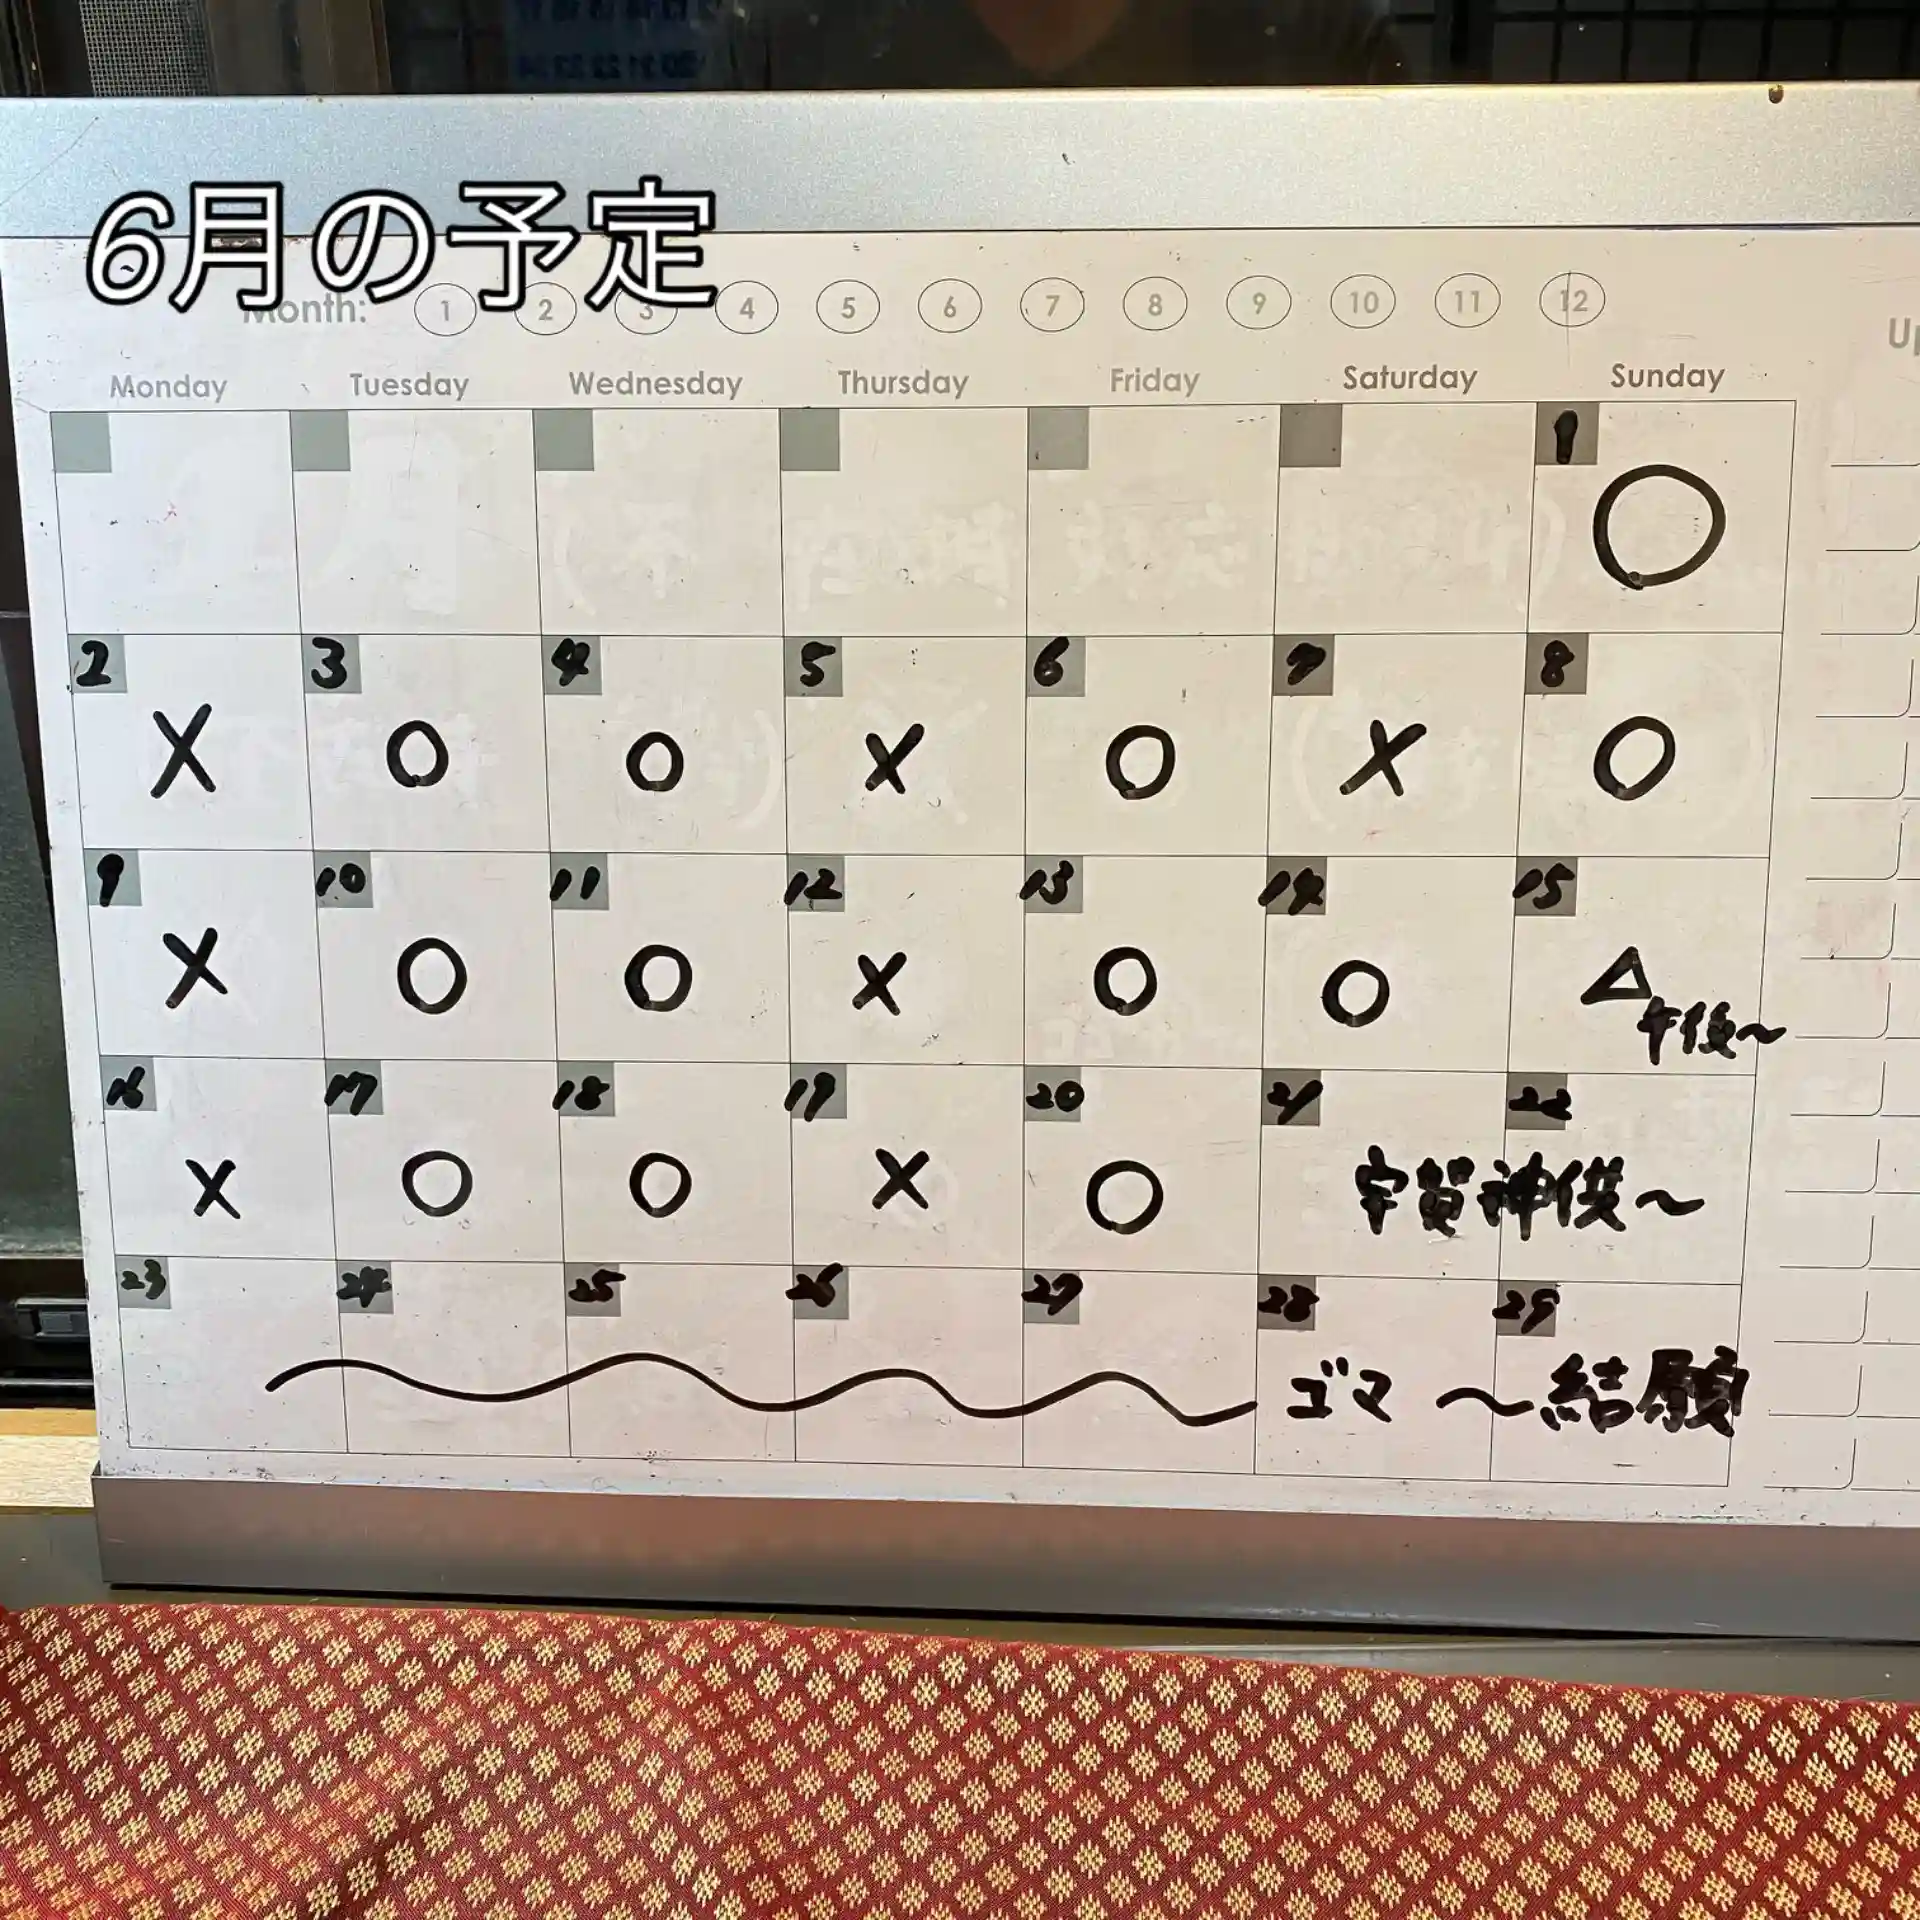 6月の予定
Month: 1 2 3 4 5 6 7 8 9 10 11 12
Monday Tuesday Wednesday Thursday Friday Saturday Sunday
1
○
2 3 4 5 6 7 8
× ○ ○ × ○ × ○
9 10 11 12 13 14 15
× ○ ○ × ○ ○ △
午後〜
16 17 18 19 20 21 22
× ○ ○ × ○ 宇賀神供〜
23 24 25 26 27 28 29
ゴマ 〜結願